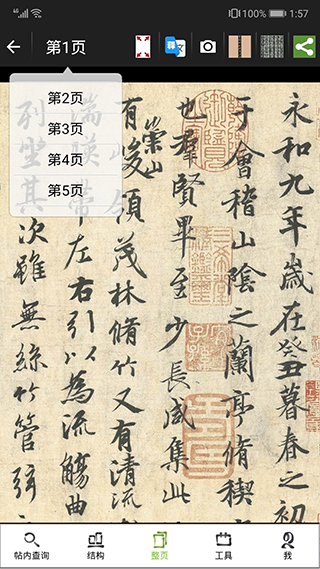 89% 1:57
第1页
第2页
第3页
第4页
第5页
永和九年歲在癸丑暮春之初
于會稽山陰之蘭亭脩稧
也羣賢畢至少長咸集此
有崇山峻領茂林脩竹又有清流
湍暎帶左右引以為流觴曲
列坐其次雖無絲竹管弦
帖内查询 结构 整页 工具 我